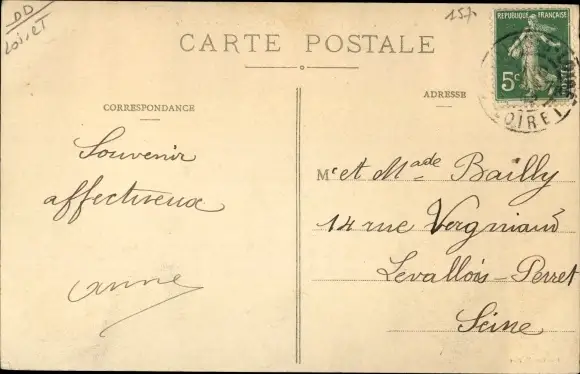 DD
Loiret
15,-
CARTE POSTALE
REPUBLIQUE FRANÇAISE
5c
LOIRET
CORRESPONDANCE
ADRESSE
Souvenir
affectueux
Anne
Mr et Made Bailly
14 rue Vergniaud
Levallois-Perret
Seine